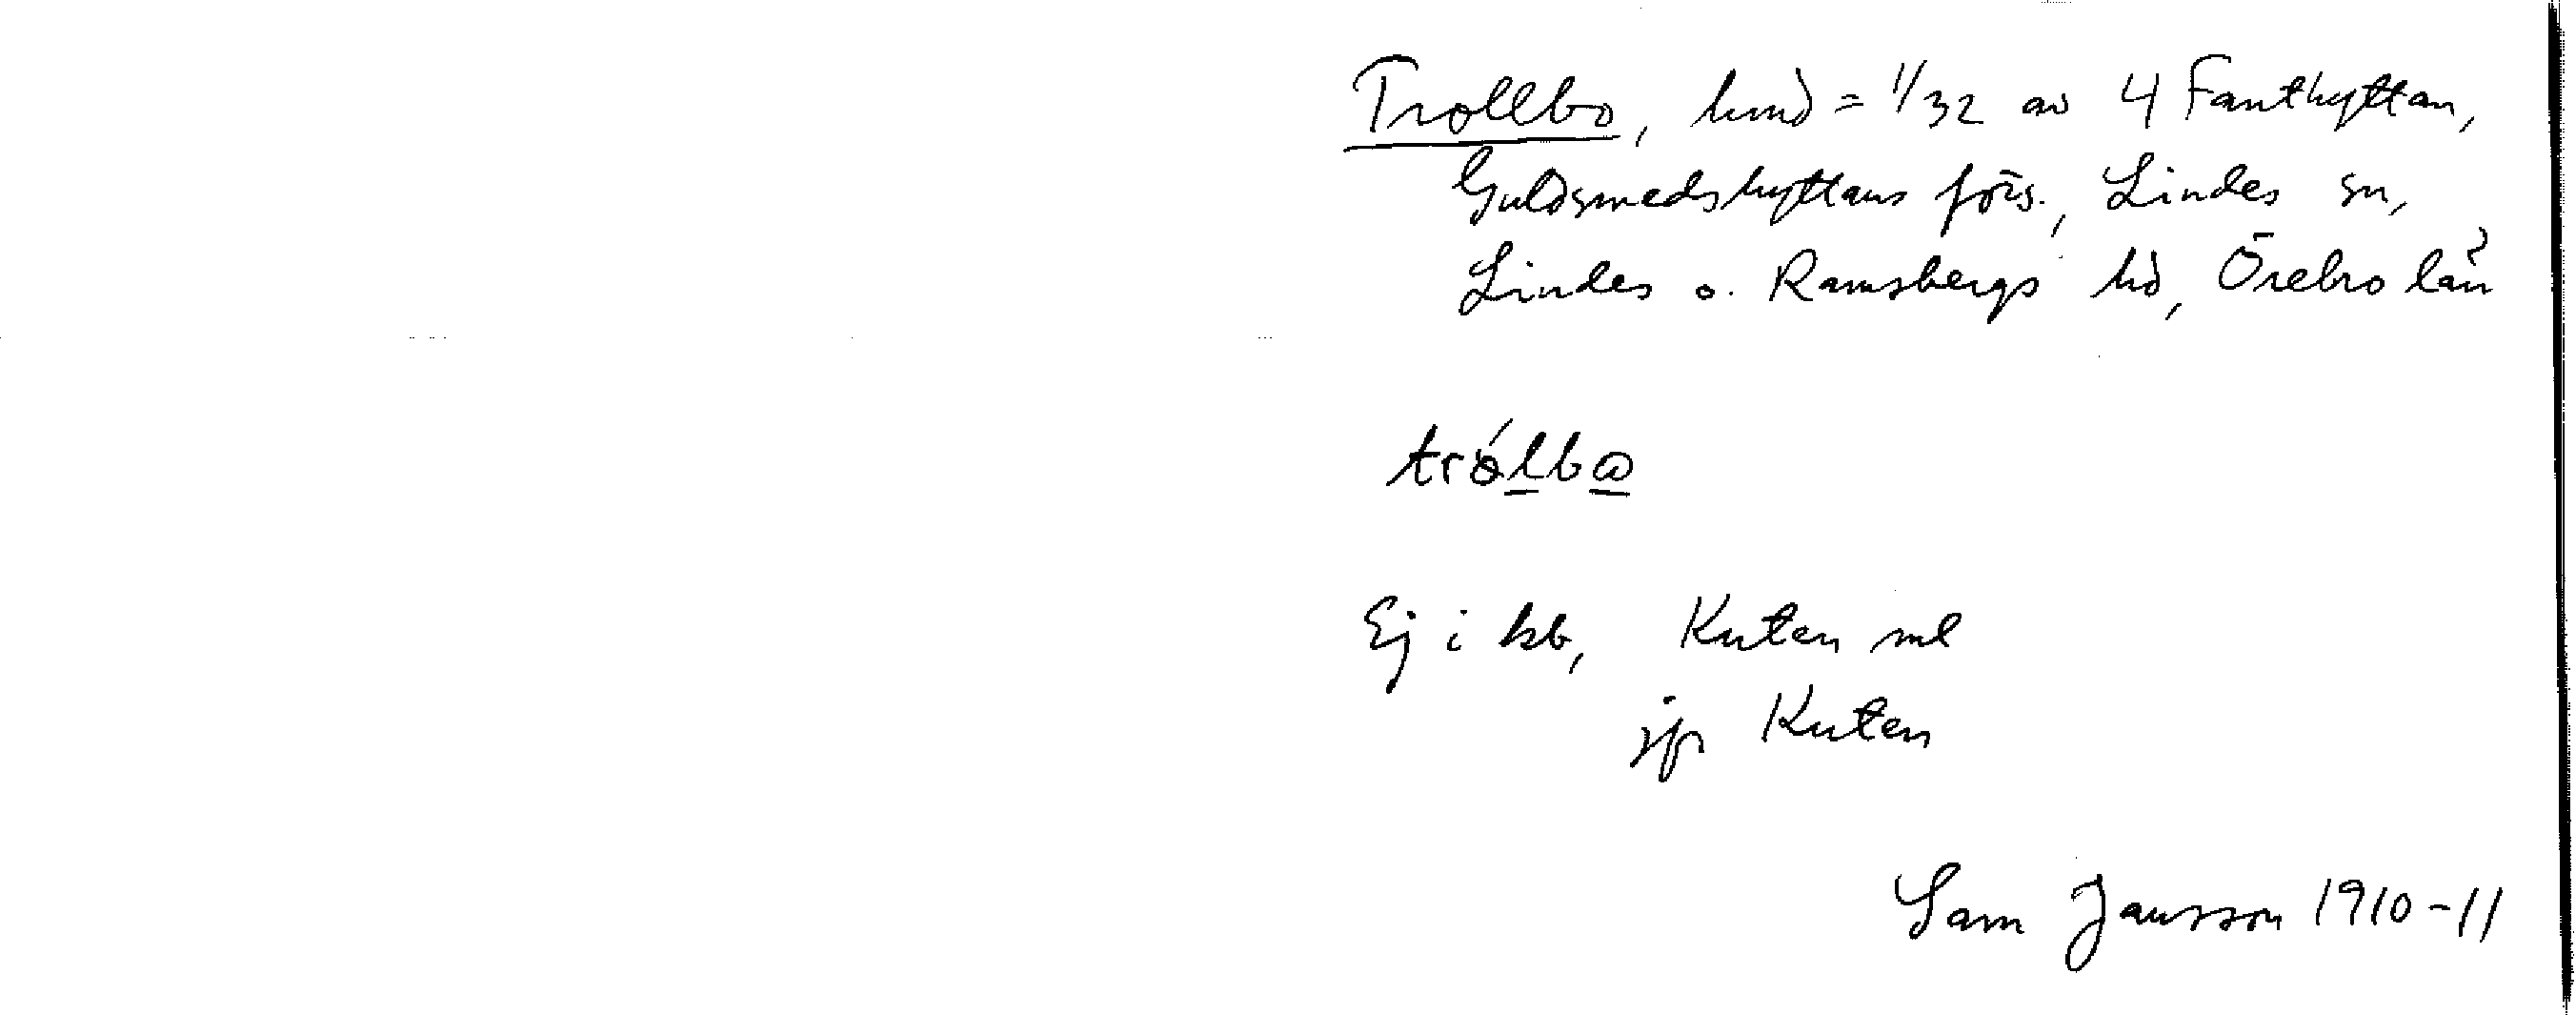 Trollbo, hmd = 1/32 av 4 Fanthyttan,
Guldsmedshyttans förs., Lindes sn,
Lindes o. Ramsbergs hd, Örebro län
trólbo
Ej i kb, Kuten ml
jfr Kuten
Sam Jansson 1910-11